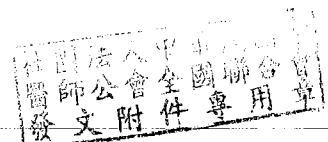 社團法人中
醫師公會全國聯合會
發文附件專用章